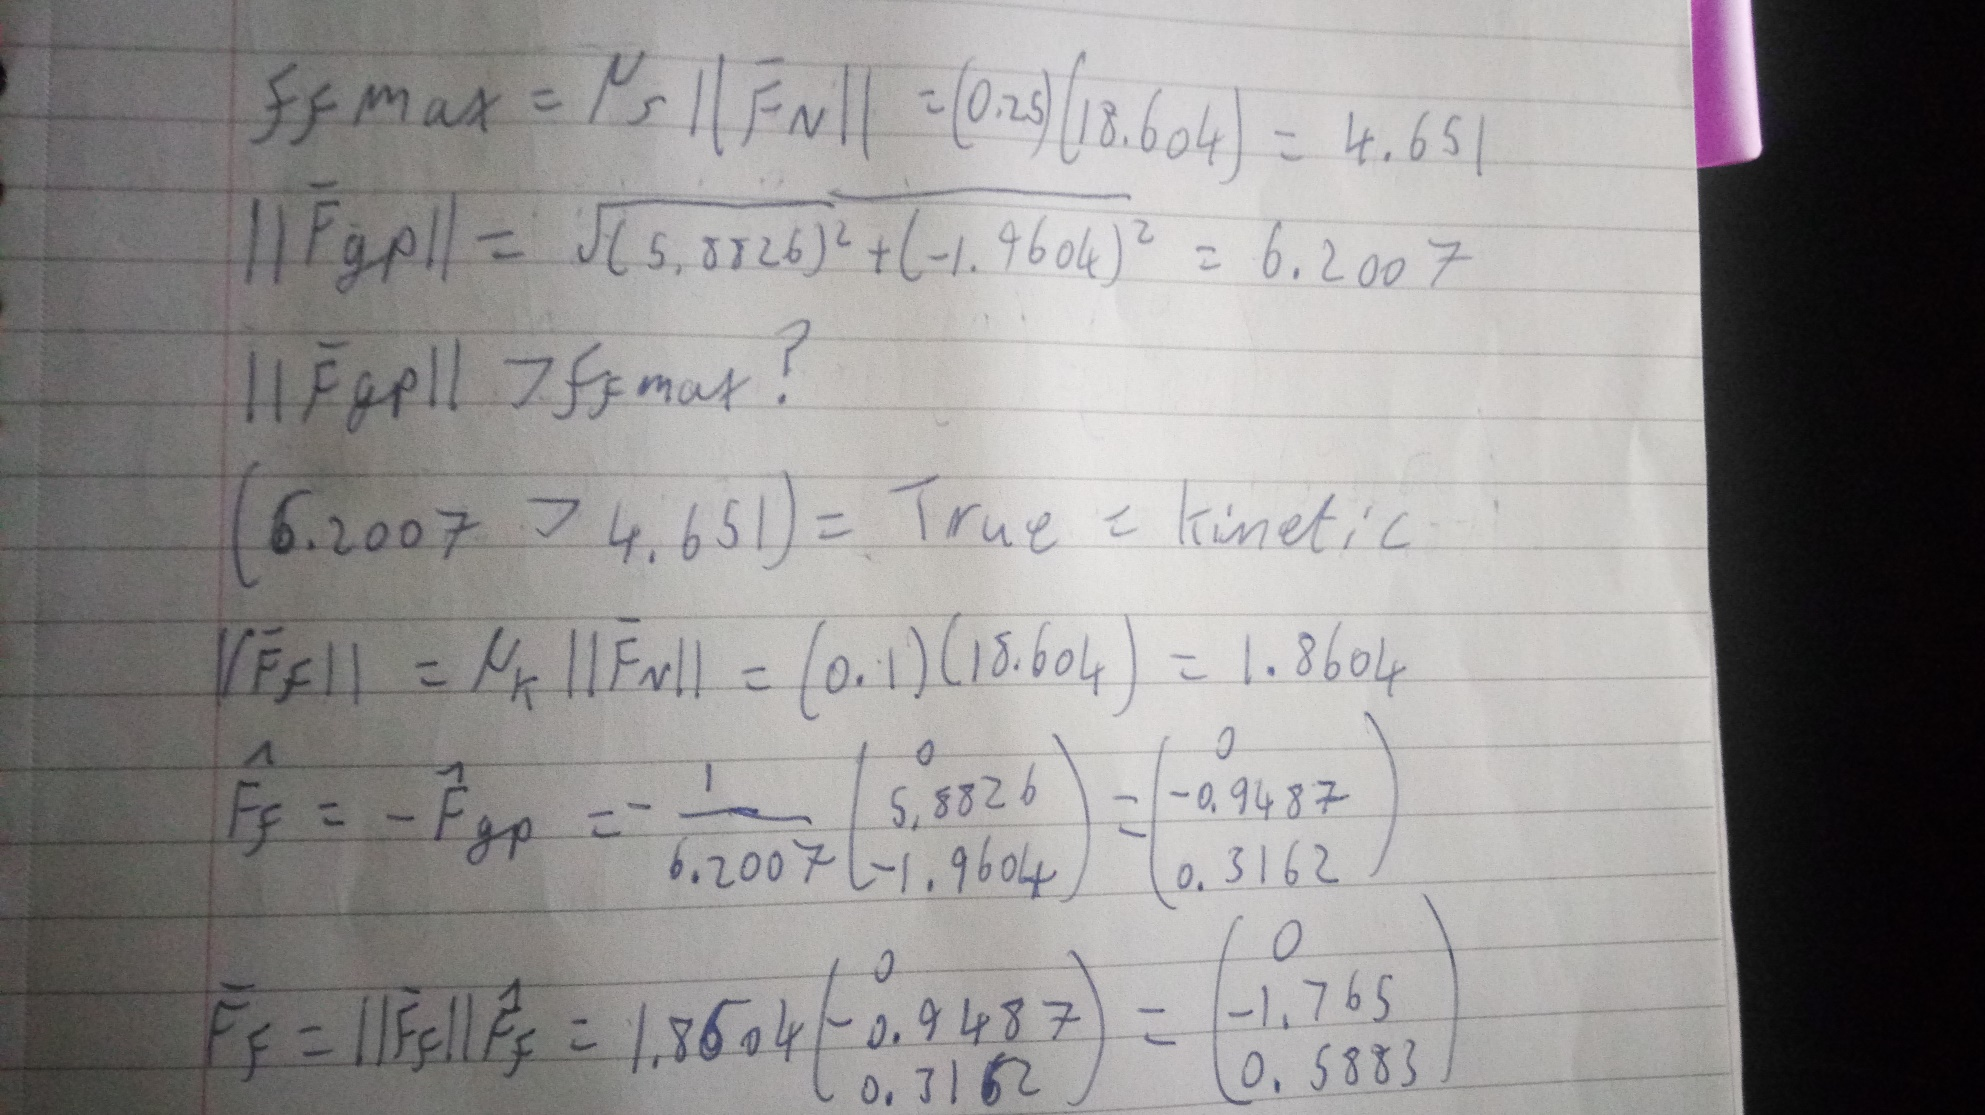 fF max = μs ||F̄N|| = (0.25)(18.604) = 4.651
||F̄gp|| = √(5,8826)² + (-1.9604)² = 6.2007
||F̄gp|| > fF max?
(6.2007 > 4.651) = True = kinetic
||F̄f|| = μk ||F̄N|| = (0.1)(18.604) = 1.8604
F̂f = - F̂gp = - 1/6.2007 (0 5,8826 -1.9604) = (0 -0.9487 0.3162)
F̄f = ||F̄f|| F̂f = 1.8604 (0 -0.9487 0.3162) = (0 -1.765 0.5883)